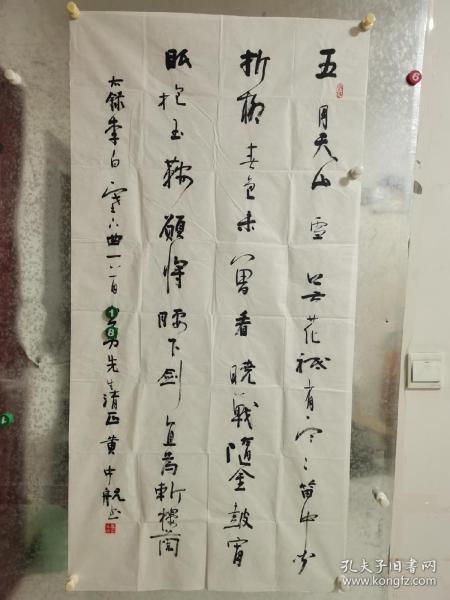 五月天山雪無花祇有寒笛中闻
折柳春色未曾看曉戰隨金鼓宵
眠抱玉鞍願將腰下剑直為斬樓蘭
右録李白塞下曲一首 勇先生清正黄中航
6
18
孔夫子旧书网
www.kongfz.com